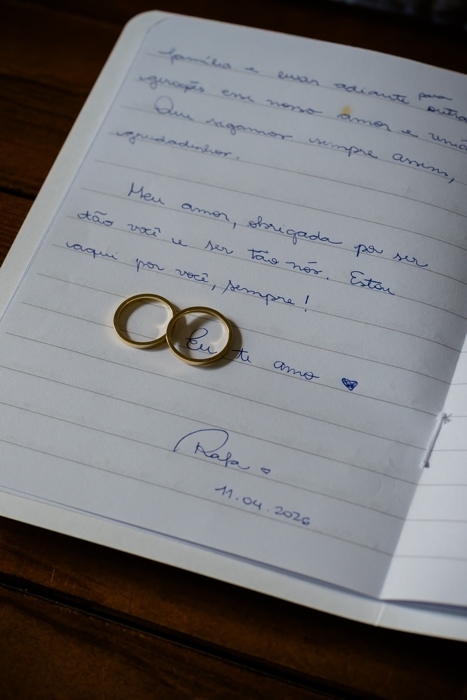 família e levar adiante para outras
gerações esse nosso amor e união
Que sigamos sempre assim,
agradadinhos.
Meu amor, obrigada por ser
tão você e ser tão nós. Estou
aqui por você, sempre!
Eu te amo ♥
Rafa
11.04.2026